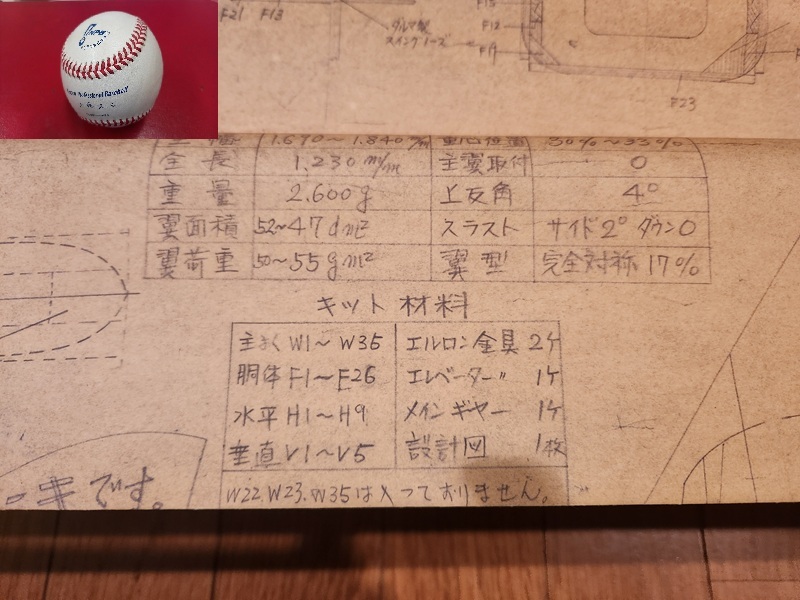 F21 F13
ダルマ製
スイングノーズ
F12
F23
1.690～1.840 m/m 30%～33%
全長 1.230 m/m 主翼取付 0
重量 2.600g 上反角 4°
翼面積 52～47dm² スラスト サイド2° ダウン0
翼荷重 50～55gm² 翼型 完全対称 17%
キット材料
W1～W35 エルロン金具 2ケ
胴体 F1～F26 エレベーター〃 1ケ
水平 H1～H9 メインギヤー 1ケ
垂直 V1～V5 設計図 1枚
W22.W23.W35は入っておりません。
キです。